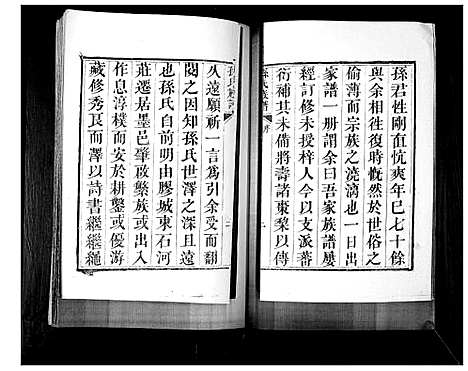 孫君性剛直忼爽年已七十餘
與余相往復時慨然於世俗之
偷薄而宗族之澆漓也一日出
家譜一册謂余曰吾家族譜屢
經訂修未授梓人今以支派蕃
衍補其未備將壽諸棗棃以傳
孫氏族譜
序
久遠願祈一言為引余受而翻
閱之因知孫氏世澤之深且遠
也孫氏自前明由膠城東石河
莊遷居墨邑肇啟縏族或出入
作息淳樸而安於耕鑿或優游
藏修秀艮而澤以詩書繼繼繩